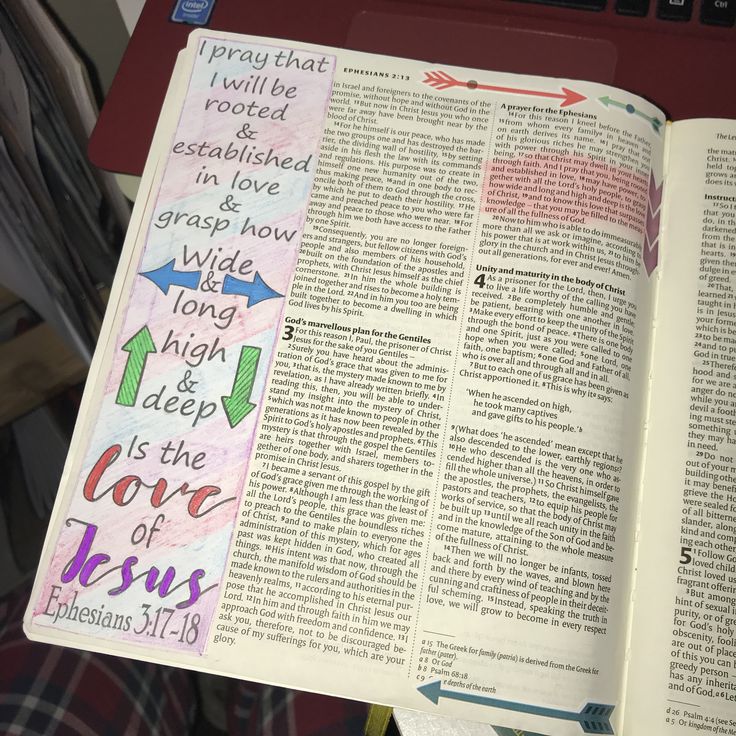 intel
I pray that
I will be
rooted
&
established
in love
&
grasp how
Wide
&
long
high
&
deep
Is the
love
of
Jesus
Ephesians 3:17-18
EPHESIANS 2:13
in Israel and foreigners to the covenants of the
promise, without hope and without God in the
world. 13But now in Christ Jesus you who once
were far away have been brought near by the
blood of Christ.
14For he himself is our peace, who has made
the two groups one and has destroyed the bar-
rier, the dividing wall of hostility, 15by setting
aside in his flesh the law with its commands
and regulations. His purpose was to create in
himself one new humanity out of the two,
thus making peace, 16and in one body to rec-
oncile both of them to God through the cross,
by which he put to death their hostility. 17He
came and preached peace to you who were far
away and peace to those who were near. 18For
through him we both have access to the Father
by one Spirit.
19Consequently, you are no longer foreign-
ers and strangers, but fellow citizens with God's
people and also members of his household,
20built on the foundation of the apostles and
prophets, with Christ Jesus himself as the chief
cornerstone. 21In him the whole building is
joined together and rises to become a holy tem-
ple in the Lord. 22And in him you too are being
built together to become a dwelling in which
God lives by his Spirit.
God's marvellous plan for the Gentiles
3 For this reason I, Paul, the prisoner of Christ
Jesus for the sake of you Gentiles –
2Surely you have heard about the adminis-
tration of God's grace that was given to me for
you, 3that is, the mystery made known to me by
revelation, as I have already written briefly. 4In
reading this, then, you will be able to under-
stand my insight into the mystery of Christ,
5which was not made known to people in other
generations as it has now been revealed by the
Spirit to God's holy apostles and prophets. 6This
mystery is that through the gospel the Gentiles
are heirs together with Israel, members to-
gether of one body, and sharers together in the
promise in Christ Jesus.
7I became a servant of this gospel by the gift
of God's grace given me through the working of
his power. 8Although I am less than the least of
all the Lord's people, this grace was given me:
to preach to the Gentiles the boundless riches
of Christ, 9and to make plain to everyone the
administration of this mystery, which for ages
past was kept hidden in God, who created all
things. 10His intent was that now, through the
church, the manifold wisdom of God should be
made known to the rulers and authorities in the
heavenly realms, 11according to his eternal pur-
pose that he accomplished in Christ Jesus our
Lord. 12In him and through faith in him we may
approach God with freedom and confidence. 13I
ask you, therefore, not to be discouraged be-
cause of my sufferings for you, which are your
glory.
A prayer for the Ephesians
14For this reason I kneel before the Father,
15from whom every family in heaven and
on earth derives its name. 16I pray that out
of his glorious riches he may strengthen you
with power through his Spirit in your inner
being, 17so that Christ may dwell in your hearts
through faith. And I pray that you, being rooted
and established in love, 18may have power, to-
gether with all the Lord's holy people, to grasp
how wide and long and high and deep is the love
of Christ, 19and to know this love that surpasses
knowledge – that you may be filled to the meas-
ure of all the fullness of God.
20Now to him who is able to do immeasurably
more than all we ask or imagine, according to
his power that is at work within us, 21to him be
glory in the church and in Christ Jesus through-
out all generations, for ever and ever! Amen.
Unity and maturity in the body of Christ
4 As a prisoner for the Lord, then, I urge you
to live a life worthy of the calling you have
received. 2Be completely humble and gentle;
be patient, bearing with one another in love.
3Make every effort to keep the unity of the Spirit
through the bond of peace. 4There is one body
and one Spirit, just as you were called to one
hope when you were called; 5one Lord, one
faith, one baptism; 6one God and Father of all,
who is over all and through all and in all.
7But to each one of us grace has been given as
Christ apportioned it. 8This is why it a says:
'When he ascended on high,
he took many captives
and gave gifts to his people.' b
9(What does 'he ascended' mean except that he
also descended to the lower, earthly regions?
10He who descended is the very one who as-
cended higher than all the heavens, in order to
fill the whole universe.) 11So Christ himself gave
the apostles, the prophets, the evangelists, the
pastors and teachers, 12to equip his people for
works of service, so that the body of Christ may
be built up 13until we all reach unity in the faith
and in the knowledge of the Son of God and be-
come mature, attaining to the whole measure
of the fullness of Christ.
14Then we will no longer be infants, tossed
back and forth by the waves, and blown here
and there by every wind of teaching and by the
cunning and craftiness of people in their deceit-
ful scheming. 15Instead, speaking the truth in
love, we will grow to become in every respect
a 15 The Greek for family (patria) is derived from the Greek for
father (pater).
a 8 Or God
b 8 Psalm 68:18
c 9 depths of the earth